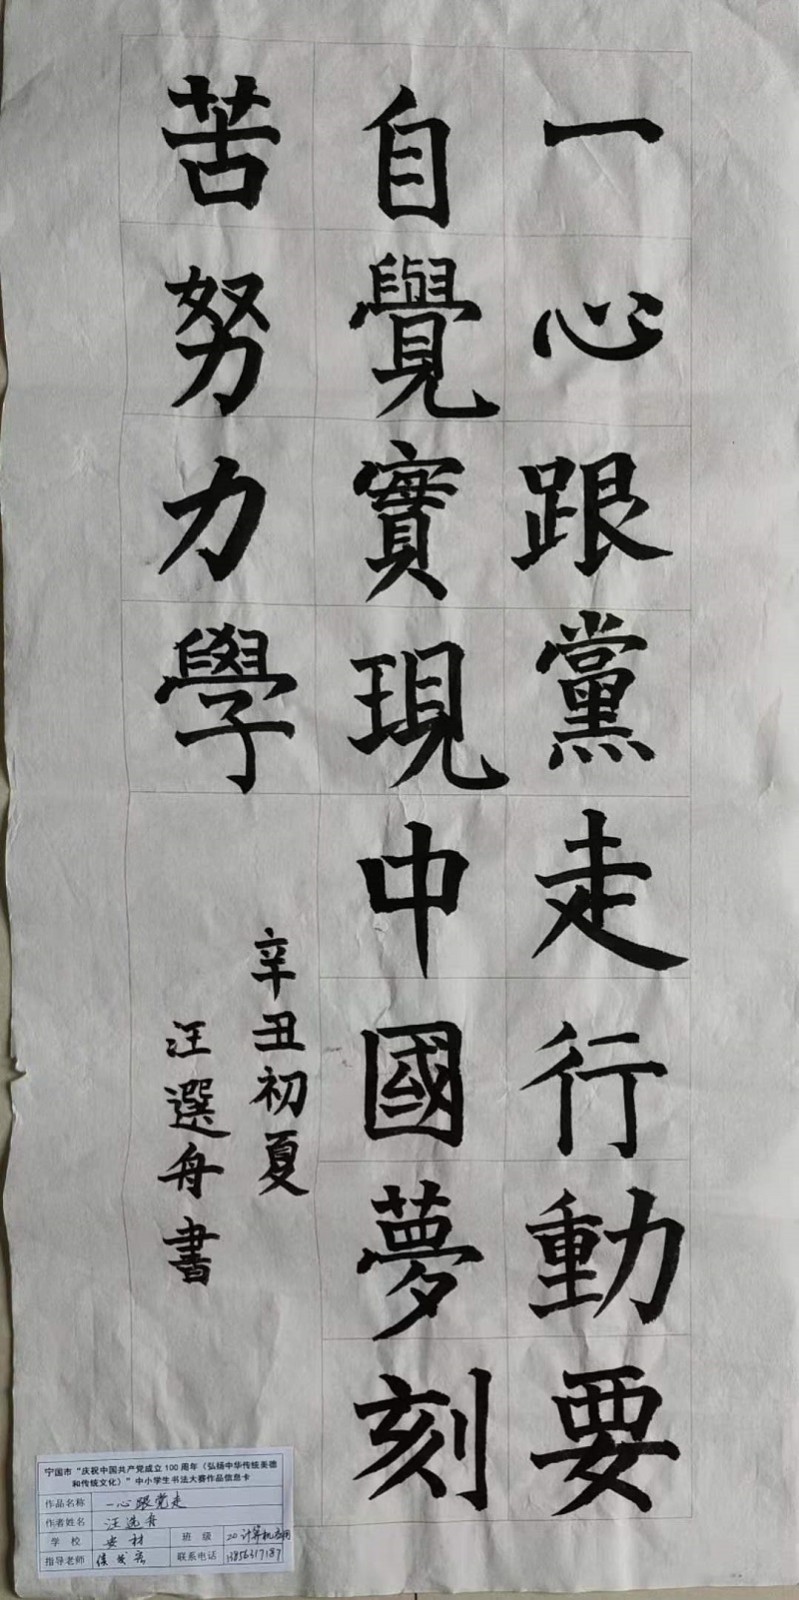 一心跟黨走行動要
自覺實現中國夢刻
苦努力學
辛丑初夏
汪選舟書
宁国市“庆祝中国共产党成立100周年（弘扬中华传统美德
和传统文化）”中小学生书法大赛作品信息卡
作品名称 一心跟党走
作者姓名 汪选舟
学 校 安材 班 级 20计算机应用
指导老师 联系电话 13856317187